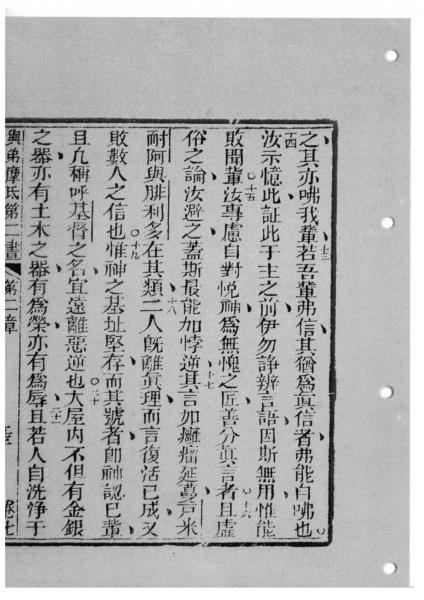 之其亦咈我輩十三若吾輩弗信其猶為眞信者弗能自咈也
十四汝示憶此証此于主之前伊勿諍辨言語因斯無用惟能
敗聞輩十五汝專慮自對悅神為無愧之匠善分眞言者十六且虛
俗之論汝避之蓋斯最能加悖逆十七其言如癰瘤延蔓戸米
耐阿與腓利多在其類十八二人旣離眞理而言復活已成又
敗數人之信也十九惟神之基址堅存而其號者卽神認已輩
且凡稱呼基督之名宜遠離惡逆也二十大屋內不但有金銀
之器亦有土木之器有為榮亦有為辱二十一且若人自洗淨于
與弟摩氏第二書 第二章 卷七